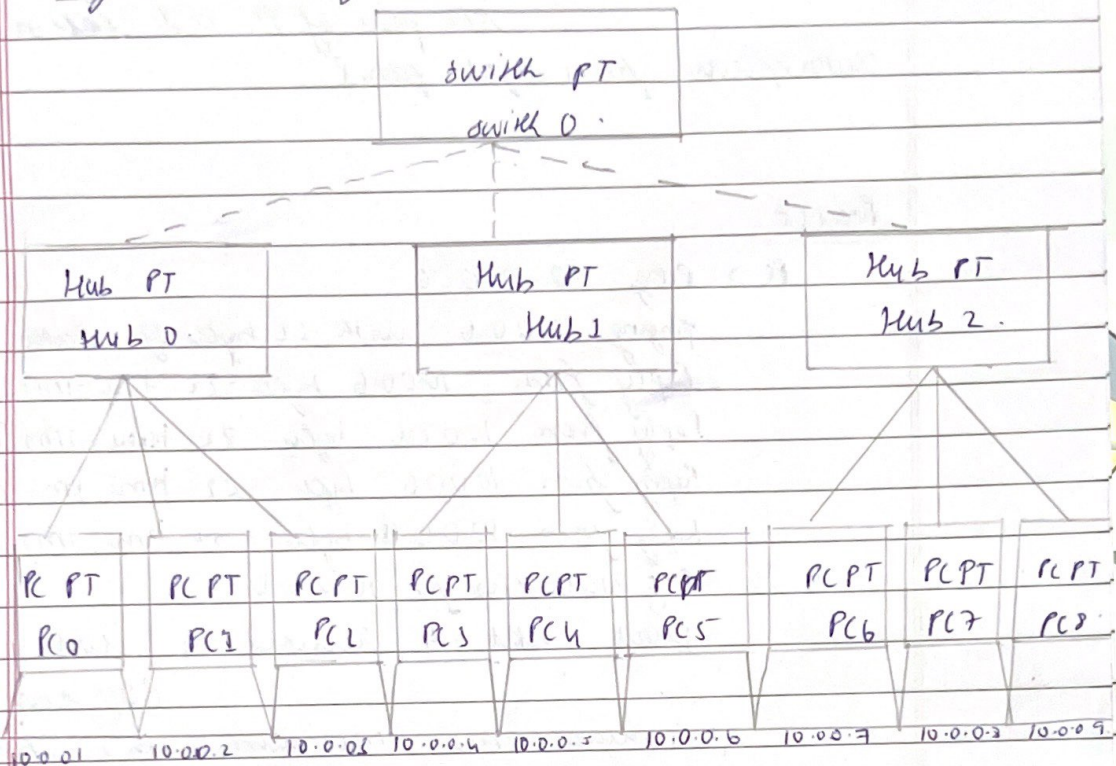 switch PT
switch 0.
Hub PT
Hub 0
Hub PT
Hub1
Hub PT
Hub 2.
PC PT
PC0
PC PT
PC1
PC PT
PC2
PCPT
PC3
PCPT
PC4
PCPT
PC5
PCPT
PC6
PCPT
PC7
PCPT
PC8
10.0.01 10.0.0.2 10.0.03 10.0.0.4 10.0.0.5 10.0.0.6 10.0.0.7 10.0.0.8 10.0.0 9.